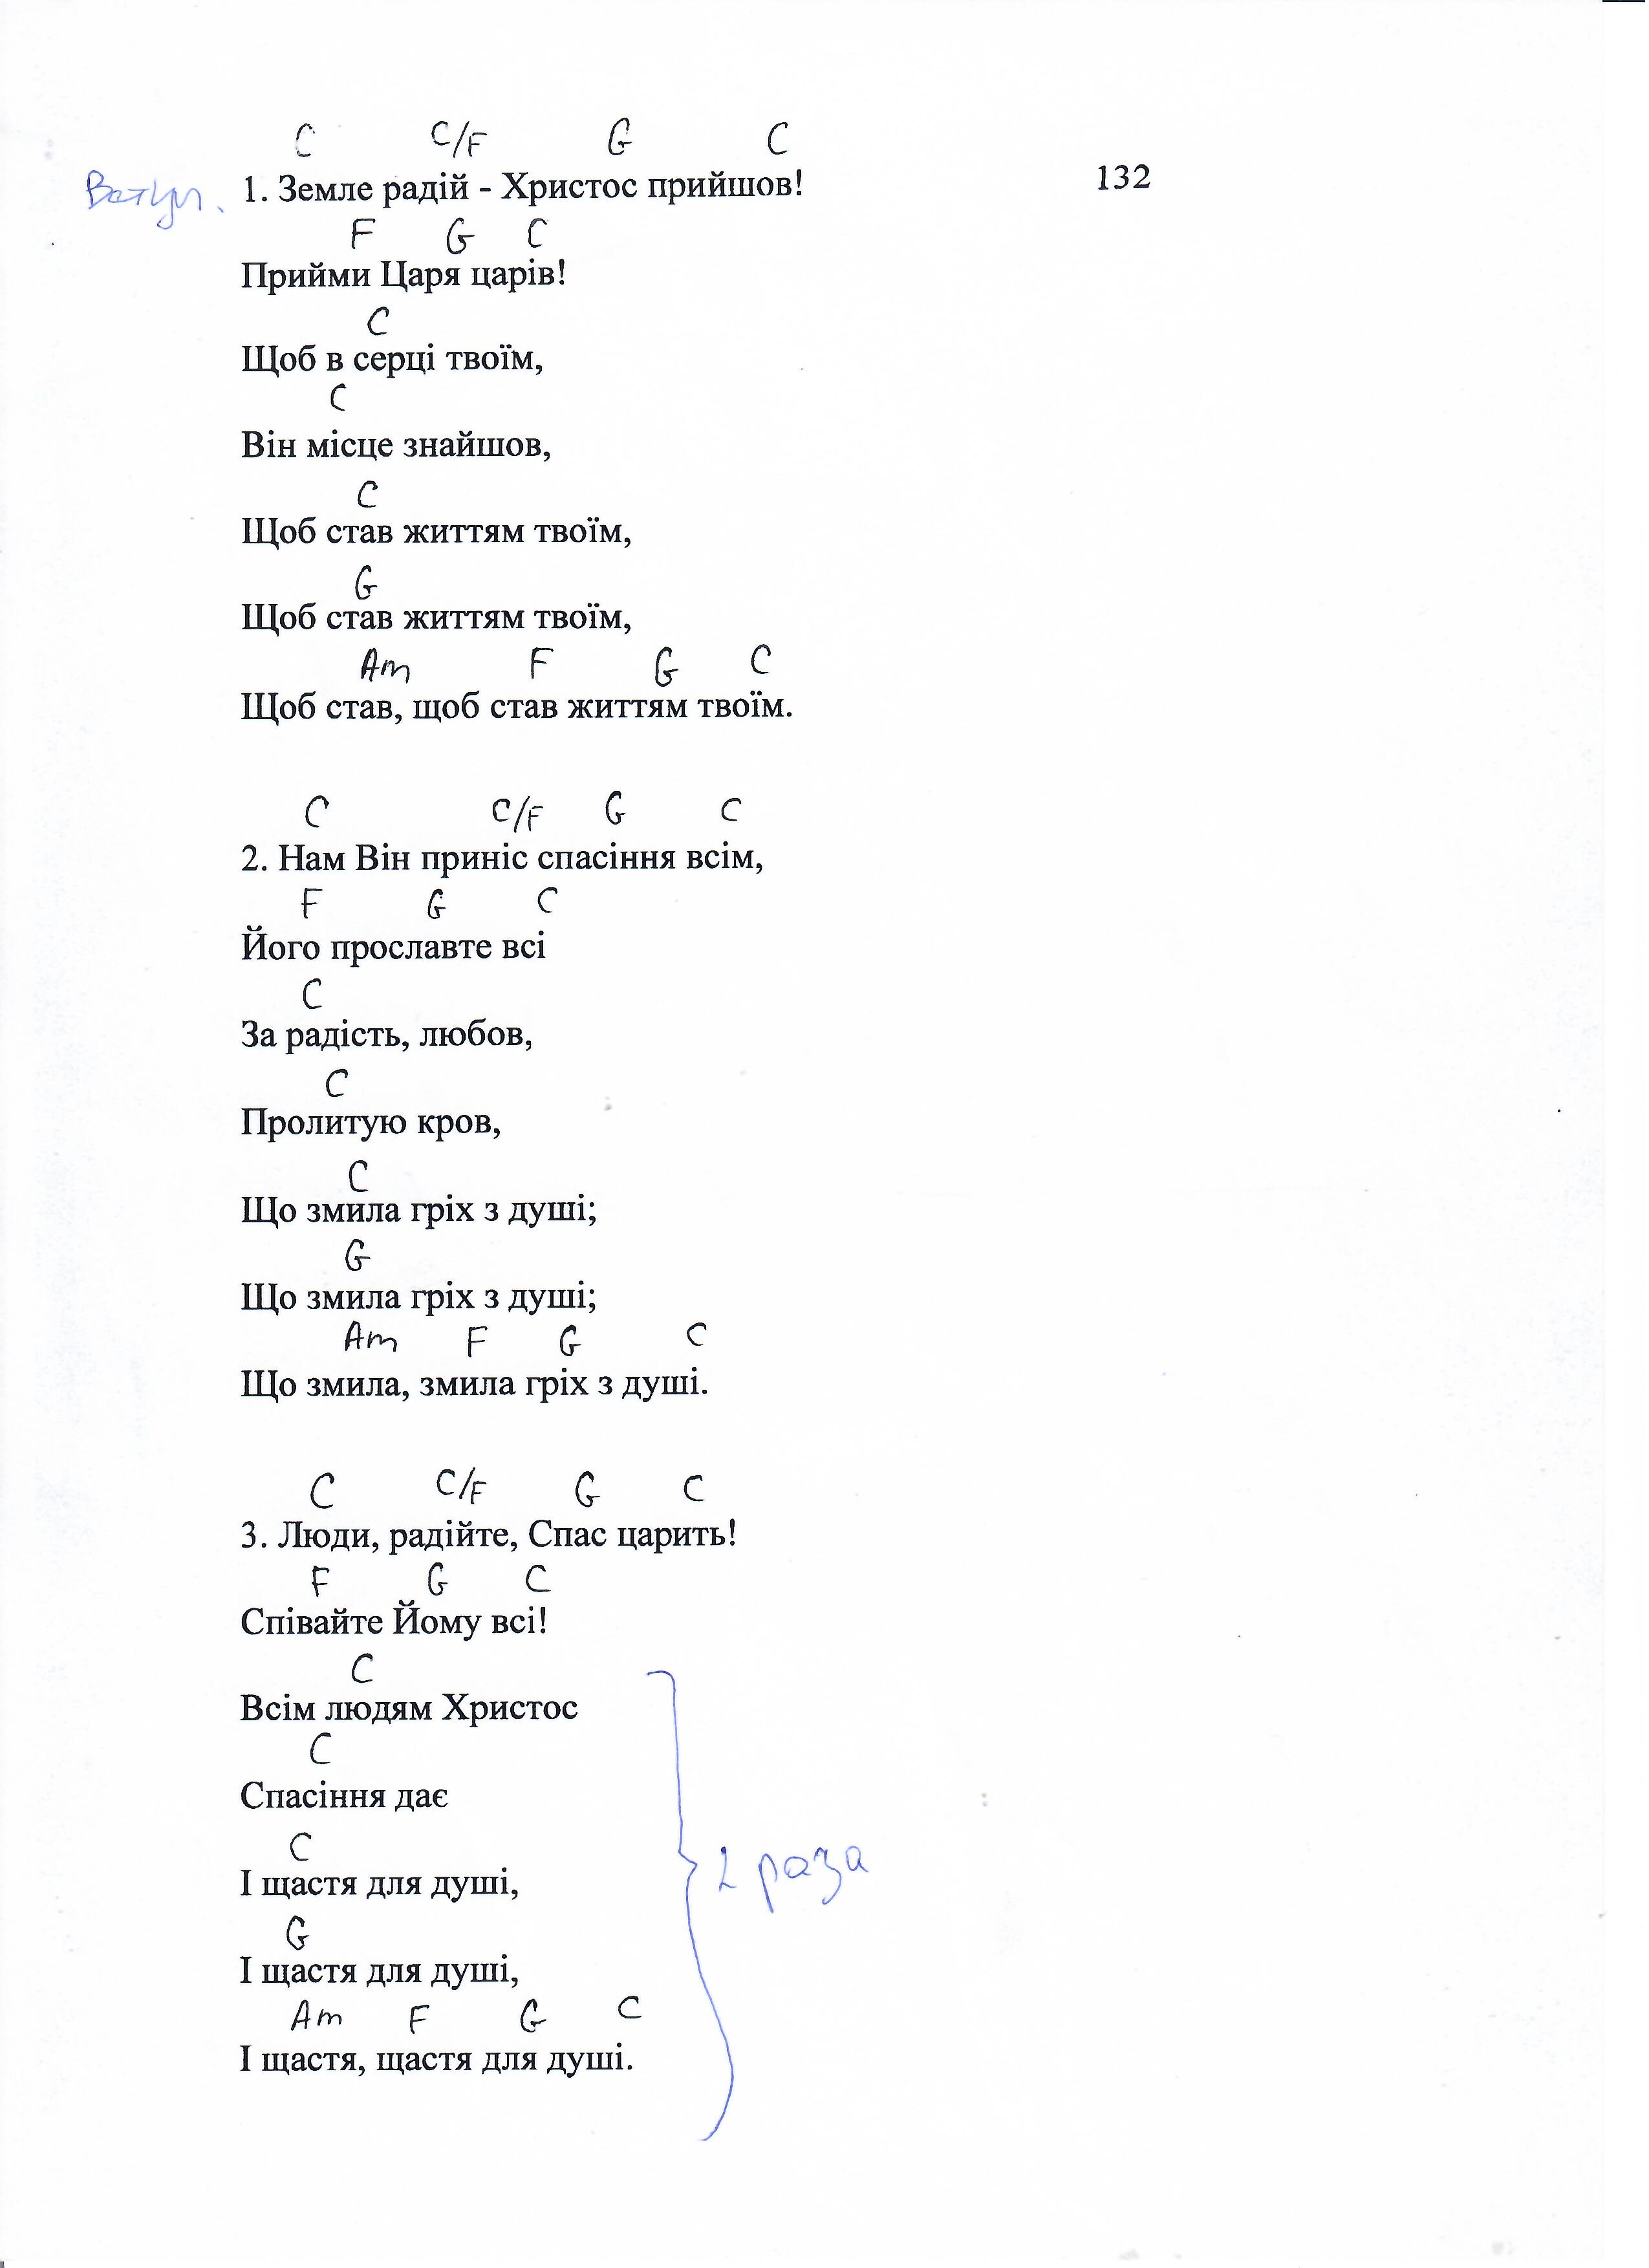 C C/F G C
Вступ. 1. Земле радій - Христос прийшов! 132
F G C
Прийми Царя царів!
C
Щоб в серці твоїм,
C
Він місце знайшов,
C
Щоб став життям твоїм,
G
Щоб став життям твоїм,
Am F G C
Щоб став, щоб став життям твоїм.
C C/F G C
2. Нам Він приніс спасіння всім,
F G C
Його прославте всі
C
За радість, любов,
C
Пролитую кров,
C
Що змила гріх з душі;
G
Що змила гріх з душі;
Am F G C
Що змила, змила гріх з душі.
C C/F G C
3. Люди, радійте, Спас царить!
F G C
Співайте Йому всі!
C
Всім людям Христос
C
Спасіння дає
C
І щастя для душі,
2 раза
G
І щастя для душі,
Am F G C
І щастя, щастя для душі.